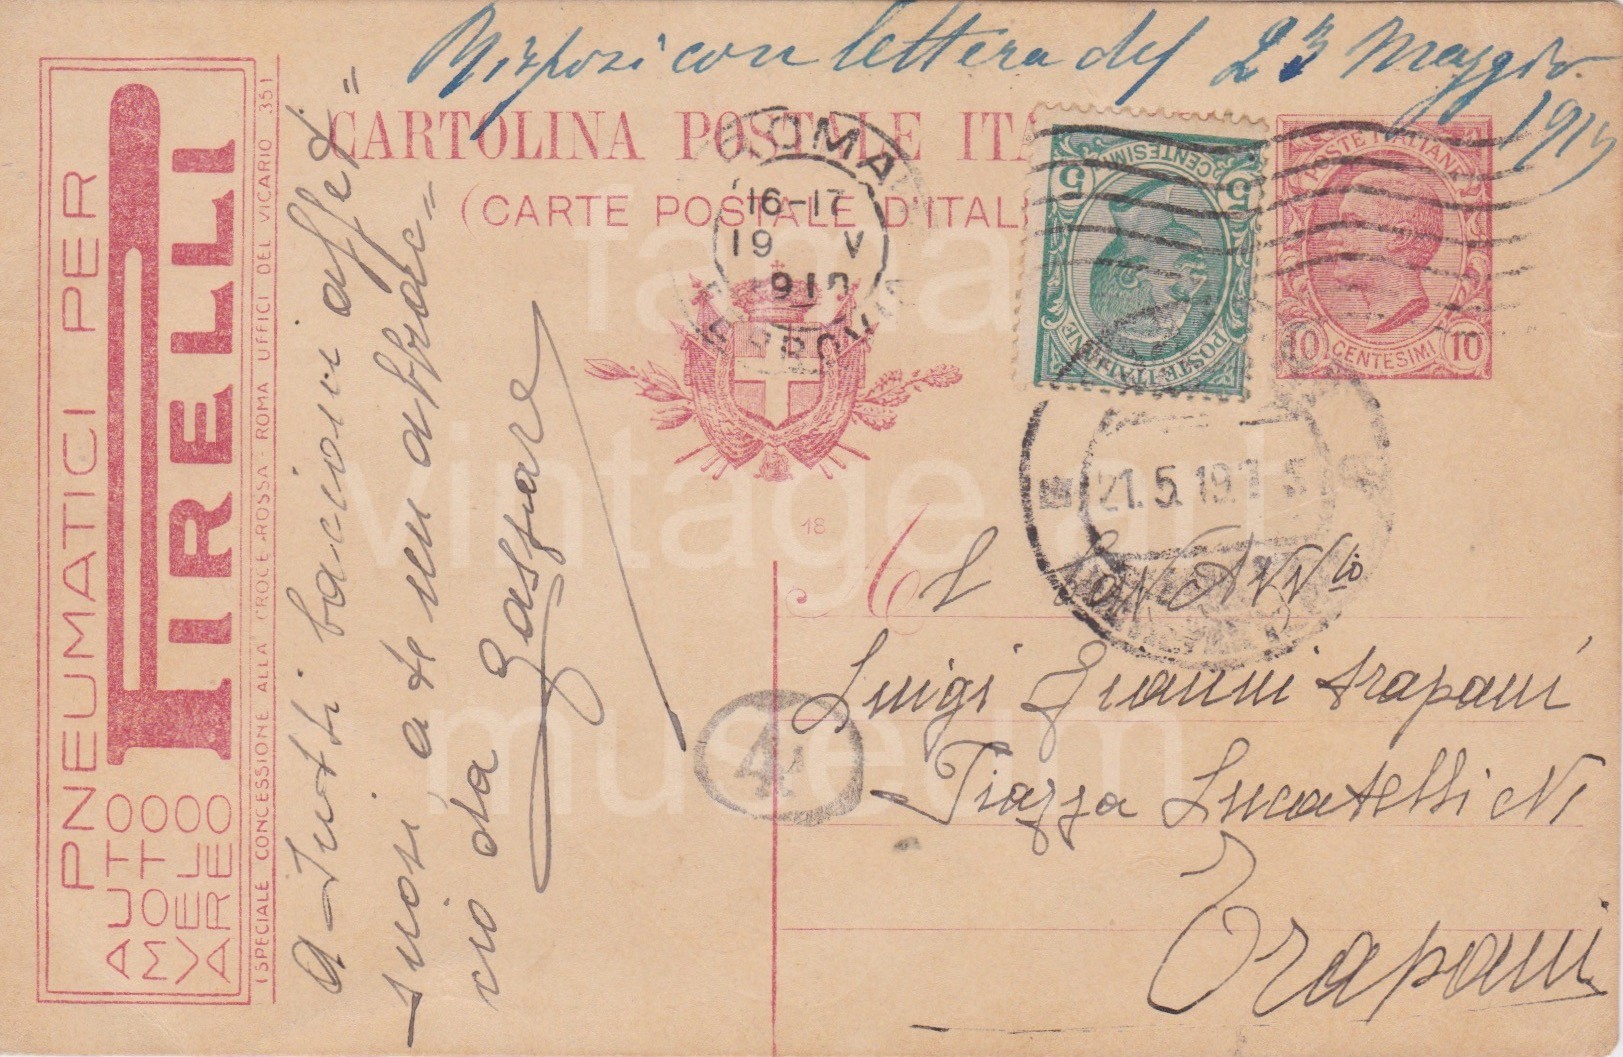 Risposi con lettera del 23 Maggio
1919
CARTOLINA POSTALE ITA
(CARTE POSTALE D'ITAL
PNEUMATICI PER
PIRELLI
AUTO
MOTO
VELO
AEREO
(SPECIALE CONCESSIONE ALLA CROCE ROSSA - ROMA UFFICI DEL VICARIO 35)
A tutti bacioni affet=
tuosi a te un abbrac=
cio da
Gaspare
ROMA
16-17
19 V
FERROVIA
CENTESIMI
5 5
POSTE ITALIANE
POSTE ITALIANE
10 CENTESIMI 10
21.5.19
18
A
Luigi Gianni Trapani
Piazza Lucatelli N1
Trapani
4
fama
vintage art
museum